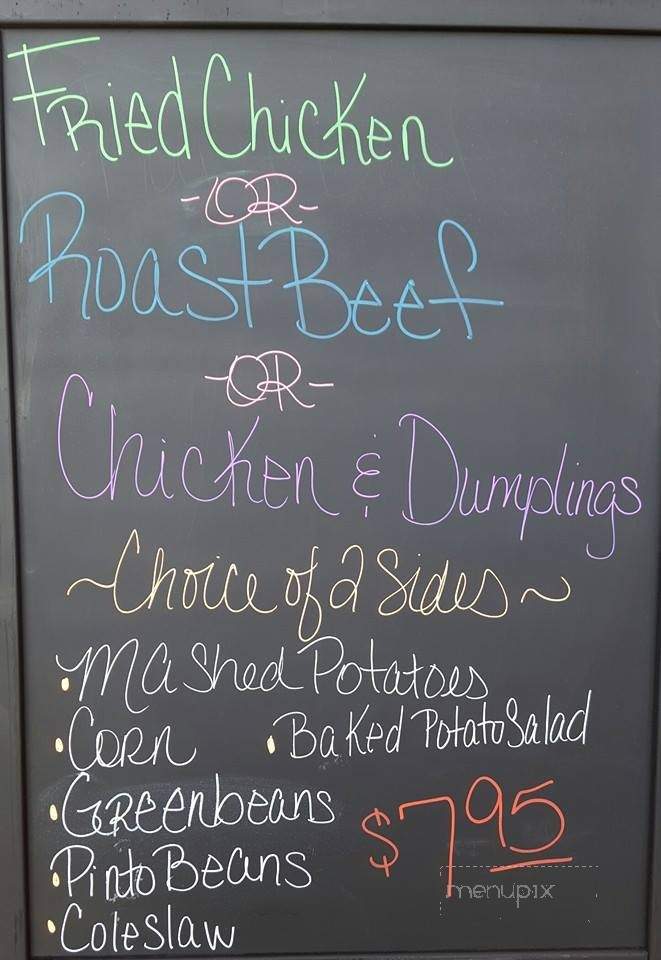 Fried Chicken
-OR-
Roast Beef
-OR-
Chicken & Dumplings
~Choice of 2 Sides~
• Mashed Potatoes
• Corn • Baked Potato Salad
• Greenbeans
$7.95
• Pinto Beans
menupix
• Coleslaw